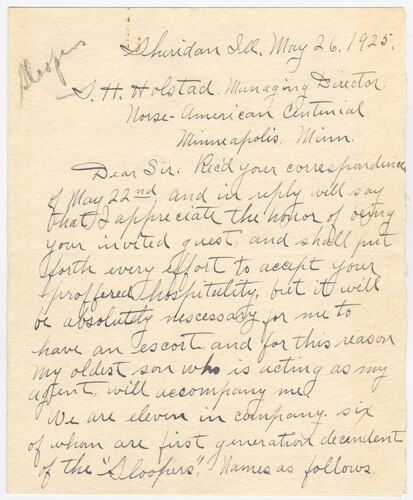 Sloopers
Sheridan Ill. May 26, 1925.
S. H. Holstad. Managing Director.
Norse-American Centinial
Minneapolis, Minn.
Dear Sir: Rec'd your correspondence
of May 22nd and in reply will say
that I appreciate the honor of being
your invited guest, and shall put
forth every effort to accept your
proffered hospitality, but it will
be absolutely nescessary for me to
have an escort, and for this reason
my oldest son who is acting as my
agent, will accompany me.
We are eleven in company. six
of whom are first generation decendent
of the "Sloopers", Names as follows.